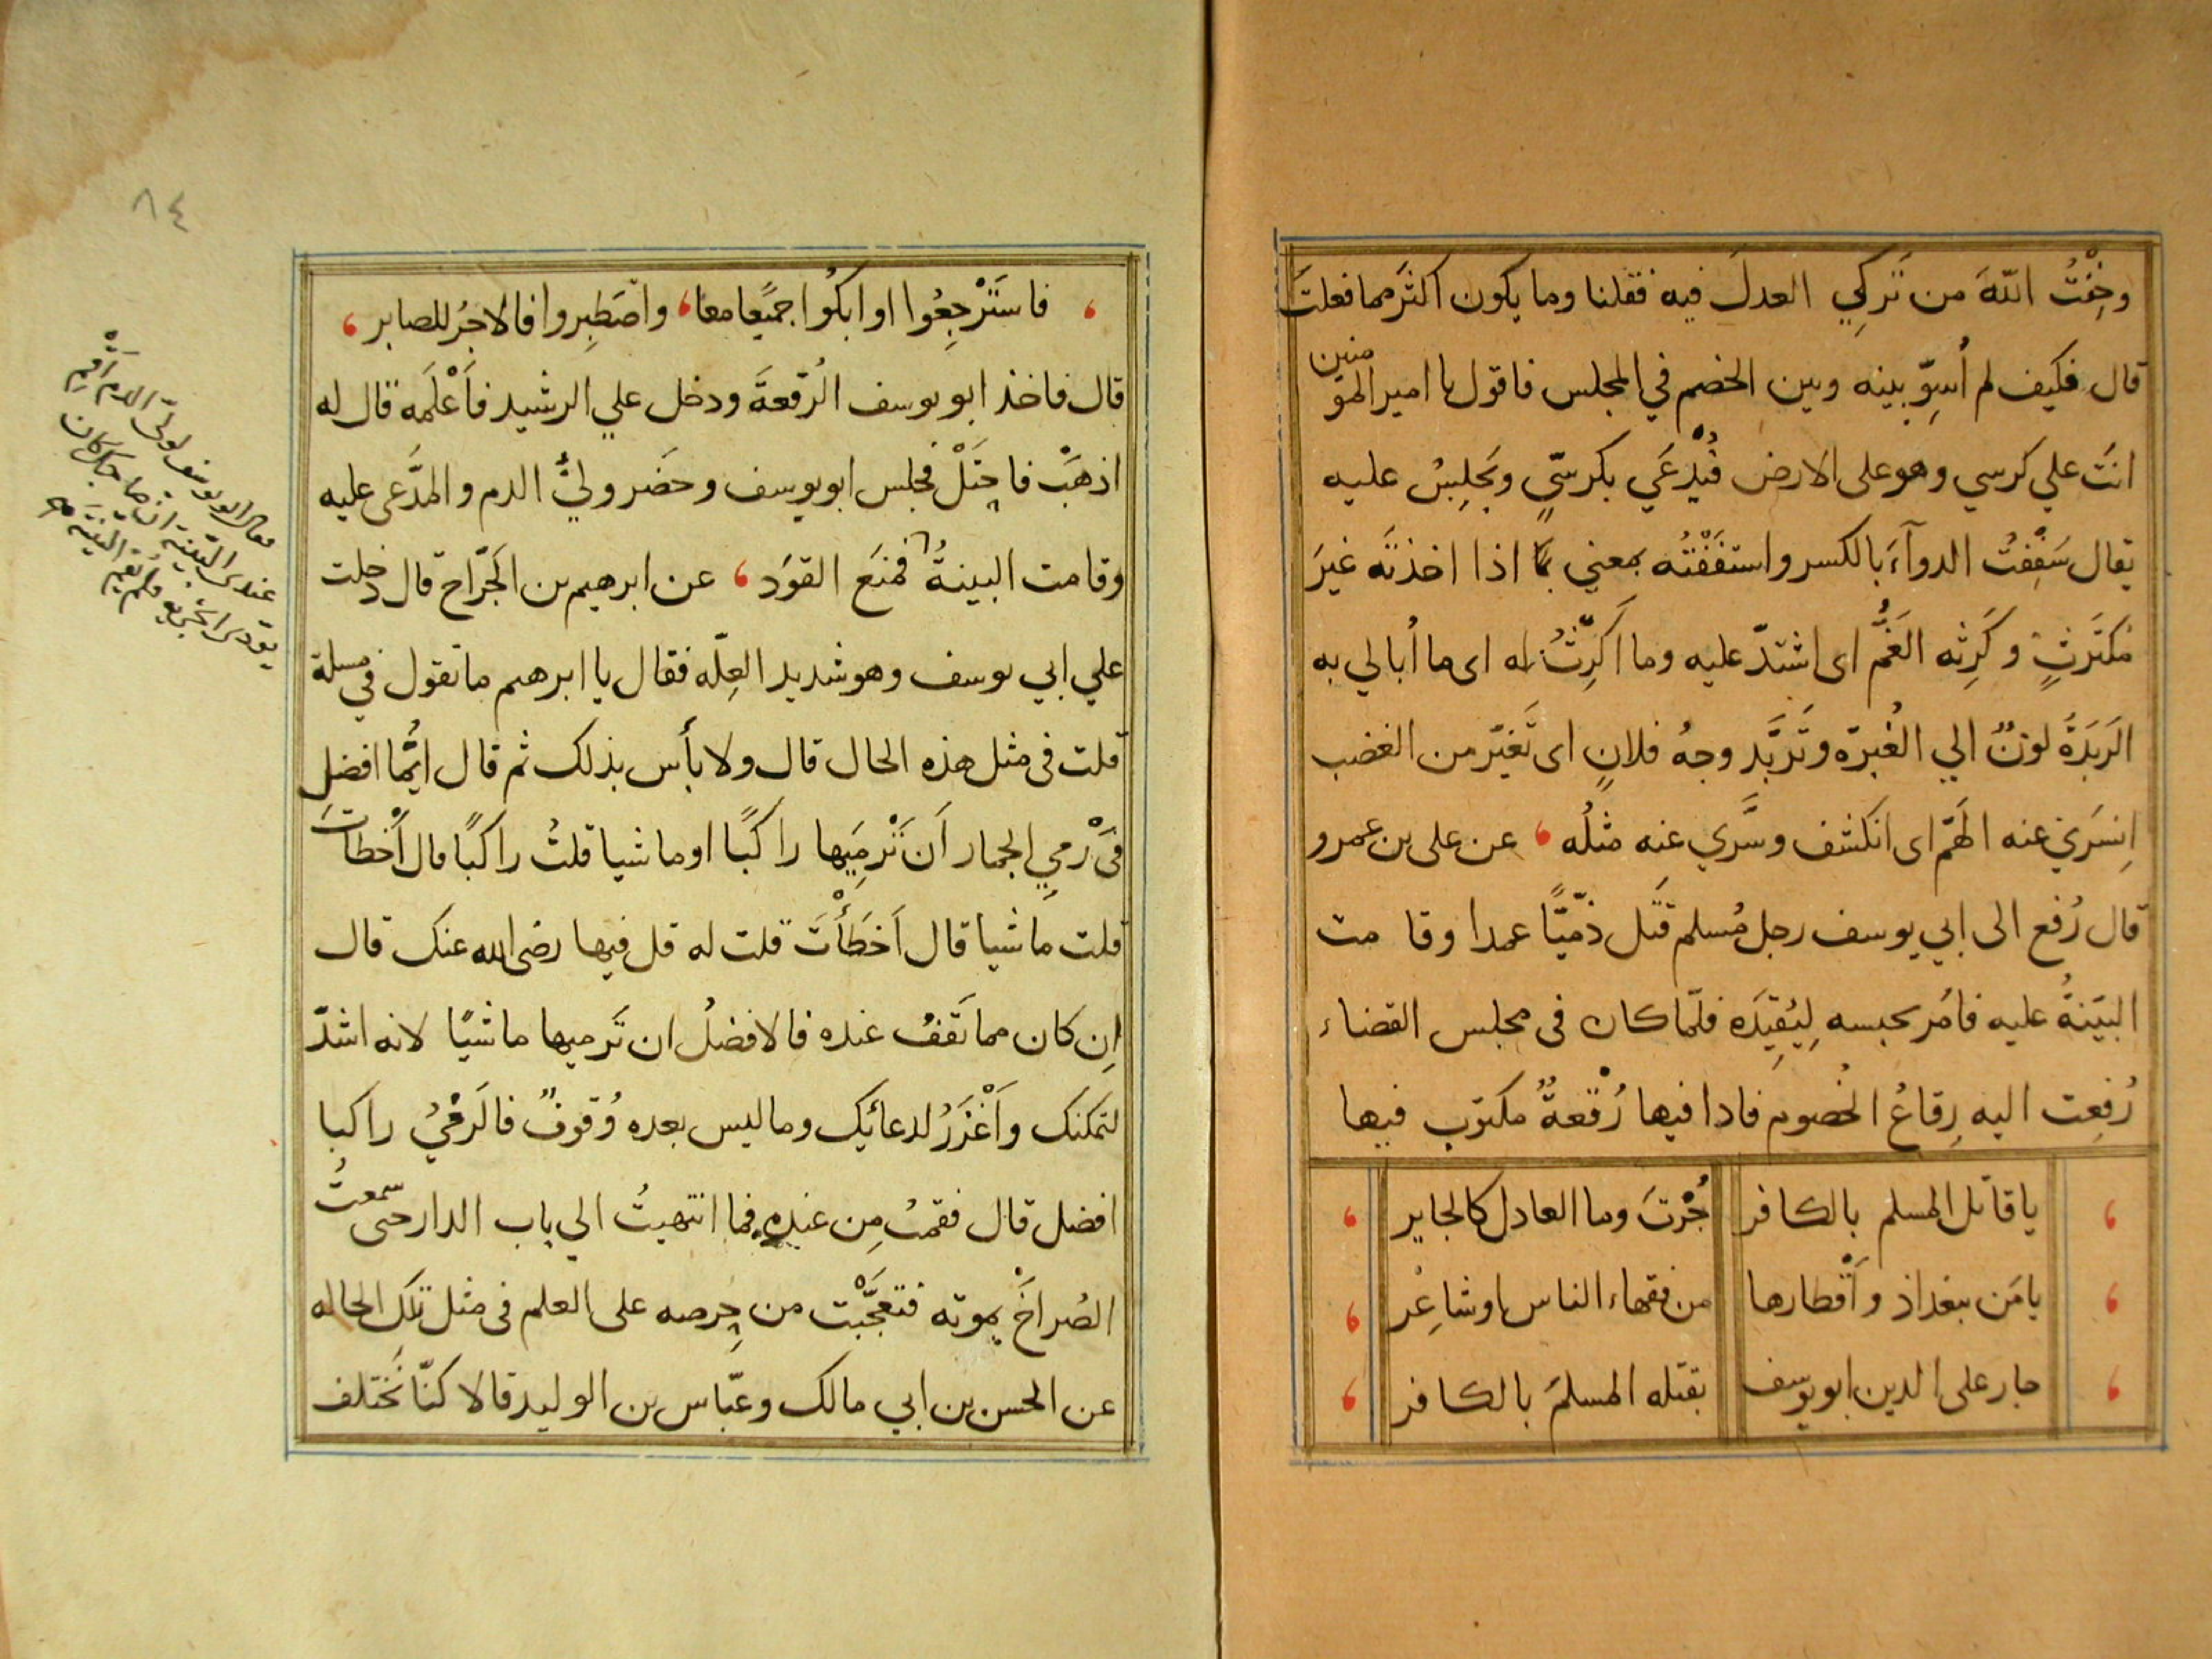 وخِفْتُ اللهَ من تَركي العدلَ فيه فقلنا وما يكون اكثرَ مما فعلتَ
قال فكيف لم أُسوِّ بينه وبين الخصم في المجلس فاقول يا امير المؤمنين
انتَ علي كرسي وهو على الارض فيُدْعَي بكرسيٍّ ويَجلِسُ عليه
يقال سَفِفْتُ الدوآءَ بالكسر واستفَفْتُه بمعني اذا اخذتَه غيرَ
مُكتَرثٍ وكَرِثه الغَمُّ اى اشتدّ عليه وما اكترثُ له اى ما أُبالي به
الرَبَدَةُ لونٌ الي الغُبرَة وتَرَبَّد وجهُ فلانٍ اى تَغيّر من الغضب
اِنسَرَي عنه الهَمّ اى انكشف وسَّري عنه مثلُه ، عن على بن عمرو
قال رُفع الى ابي يوسف رجل مُسلم قَتل ذمّيًّا عمدا وقامت
البيّنةُ عليه فامَر بحبسه لِيُقِيدَه فلمّا كان فى مجلس القضاء
رُفِعت اليه رِقاعُ الخُصوم فاذا فيها رُقْعةٌ مكتوب فيها
، يا قاتل المسلم بالكافر جُرْتَ وما العادل كالجاير ،
، يا مَن ببغداذ وأقْطارها من فقهاء الناس او شاعِر ،
، جار على الدين ابو يوسف بقتله المسلمَ بالكافر ،
٨٤
، فاستَرْجِعُوا او ابكُوا جميعًا معا ، واصّطَبِروا فالاجرُ للصابر ،
قال فاخذ ابو يوسف الرُقعةَ ودخل علي الرشيد فأَعْلَمَه قال له
اذهَبْ فاحتَلْ فجلس ابو يوسف وحضر وليُّ الدم والمدَّعى عليه
وقامت البينةُ فمنَع القوَد ، عن ابرهيم بن الجَرّاح قال دخلت
علي ابي يوسف وهو شديد العِلّه فقال يا ابرهيم ما تقول في مسلة
قلت فى مثل هذه الحال قال ولا بأس بذلك ثم قال ايُّها افضل
فى رَمي الجمار اَن نَرْمِيَها راكبًا او ماشيا قلتُ راكبًا قال أَخْطاتَ
قلت ماشيا قال اَخطَأْتَ قلت له قل فيها رضى الله عنك قال
اِن كان مما تَقفُ عنده فالافضلُ ان تَرميها ماشيًا لانه اشدّ
لتمكنك واَغْزَرُ لدعائِك وما ليس بعده وُقوفٌ فالرَميُ راكبا
افضل قال فقمتُ مِن عنده فما انتهيتُ الي باب الدار حتى سمعتُ
الصُراخَ بموته فتعجَّبْت من حِرصه على العلم فى مثل تلك الحاله
عن الحسن بن ابي مالك وعبّاس بن الوليد قالا كنّا نَختلف
فقال ابو يوسف لوليّ الدم أَقِم
عندى البيّنة انّ صاحبك كان
يؤدى الجزية فلم يُقِم البيّنة